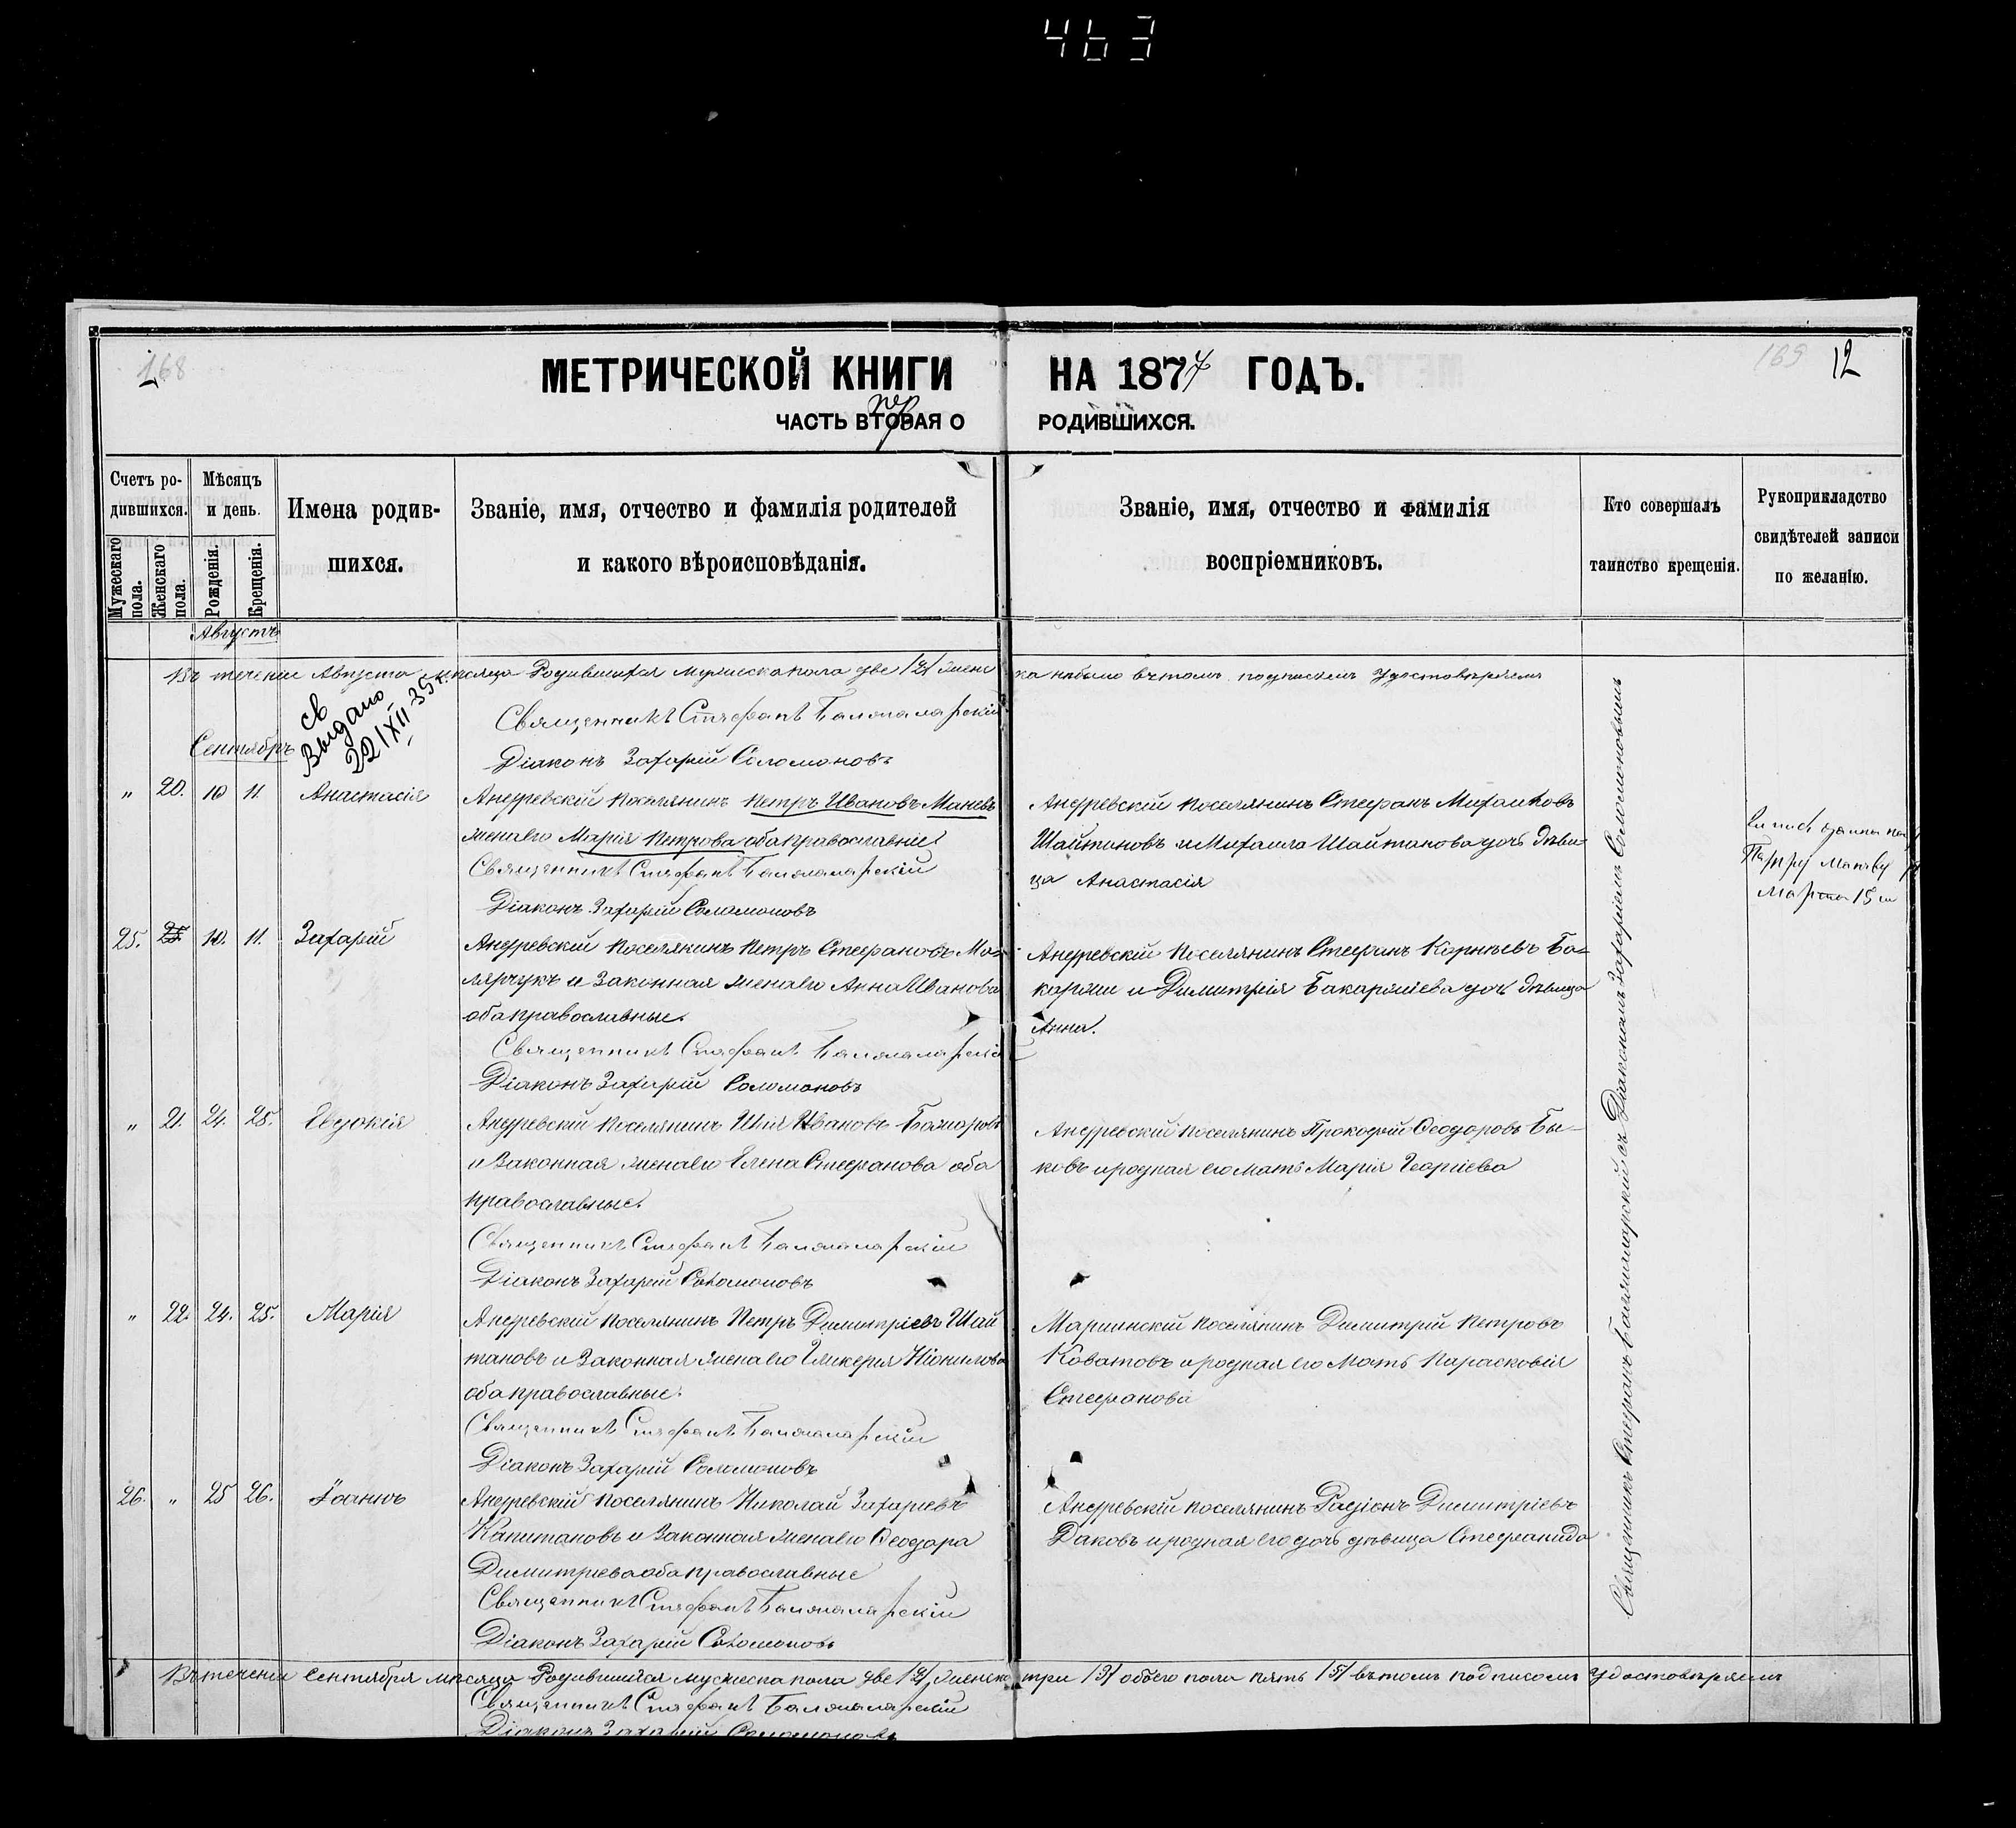 463
168
МЕТРИЧЕСКОЙ КНИГИ НА 1877 ГОДЪ.
169 12
ЧАСТЬ ВТОРАЯ О РОДИВШИХСЯ.
пер
Счетъ ро-
дившихся.
Мужескаго
пола.
Женскаго
пола.
Мѣсяцъ
и день.
Рожденія.
Крещенія.
Имена родив-
шихся.
Званіе, имя, отчество и фамилія родителей
и какого вѣроисповѣданія.
Званіе, имя, отчество и фамилія
воспріемниковъ.
Кто совершалъ
таинство крещенія.
Рукоприкладство
свидѣтелей записи
по желанію.
Августъ
Въ теченіи Августа мѣсяца Родившихся мужеска пола две /2/ женска небыло въ томъ подписомъ удостовѣряемъ
Священникъ Стефанъ
Діаконъ Захарій Соломоновъ
св
Выдано
22/XII 35
Сентябръ
" 20. 10 11. Анастасія
Андреевскій поселянинъ Петръ Ивановъ Маневъ
жена его Марія Петрова оба православніе
Священникъ Стефанъ
Діаконъ Захарій Соломоновъ
Андреевскій поселянинъ Стефанъ Михаиловъ
Шайтановъ и Михаила Шайтанова дочь дѣви-
ца Анастасія
Петру Маневу
Марта 15
25. 10. 11. Захарій
Андреевскій поселянинъ Петръ Стефановъ Ма-
лярчукъ и законная жена его Анна Иванова
оба православные.
Священникъ Стефанъ
Діаконъ Захарій Соломоновъ
Андреевскій поселянинъ Стефанъ Корнѣевъ Ба-
каржи и Димитрія Бакаржіева дочь дѣвица
Анна.
" 21. 24. 25. Евдокія
Андреевскій поселянинъ Илія Ивановъ
и законная жена его Елена Стефанова оба
православные.
Священникъ Стефанъ
Діаконъ Захарій Соломоновъ
Андреевскій поселянинъ Прокофій Феодоровъ Бы-
ковъ и родная его мать Марія Георгіева
" 22. 24. 25. Марія
Андреевскій поселянинъ Петръ Димитріевъ Шай
тановъ и законная жена его Гликерия
оба православные.
Священникъ Стефанъ
Діаконъ Захарій Соломоновъ
Мариинскій поселянинъ Димитрій Петровъ
Коватовъ и родная его мать Парасковія
Стефанова
26. " 25 26. Іоаннъ
Андреевскій поселянинъ Николай Захаріевъ
Капитановъ и законная жена его Феодора
Димитриева оба православные
Священникъ Стефанъ
Діаконъ Захарій Соломоновъ
Андреевскій поселянинъ Радіонъ Димитріевъ
Даковъ и родная его дочь дѣвица Стефанида
Священникъ Стефанъ съ Діакономъ Захаріемъ Соломоновымъ
Въ теченіи Сентября мѣсяца Родившихся мужеска пола две /2/ женска три /3/ обоего пола пять /5/ въ томъ подписомъ удостовѣряемъ
Священникъ Стефанъ
Діаконъ Захарій Соломоновъ